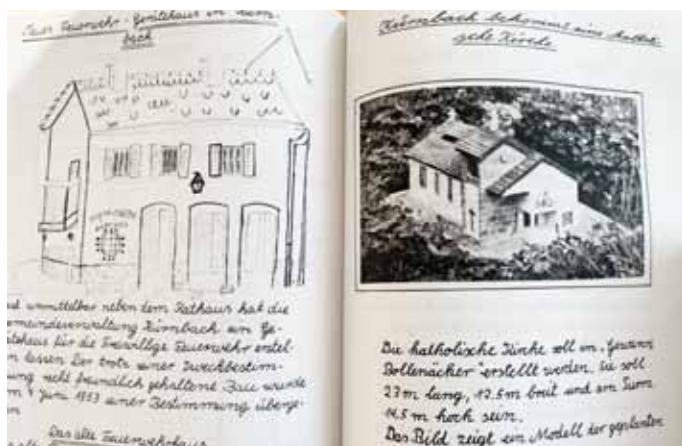 Neues Feuerwehr-Gerätehaus in Kürn-
bach
und unmittelbar neben dem Rathaus hat die
emeindeverwaltung Kürnbach ein Ge-
ätehaus für die Freiwillige Feuerwehr erstel-
n lassen Der trotz seiner Zweckbestim-
ung recht freundlich gehaltene Bau wurde
m 4 Juni 1953 seiner Bestimmung überge-
n
Das alte Feuerwehrhaus
Kürnbach bekommt eine kathol-
ische Kirche
Die katholische Kirche soll im „Gewann
Bollenäcker" erstellt werden. Sie soll
23 m lang, 12.5 m breit und am Turm
14,5 m hoch sein.
Das Bild zeigt ein Modell der geplanten